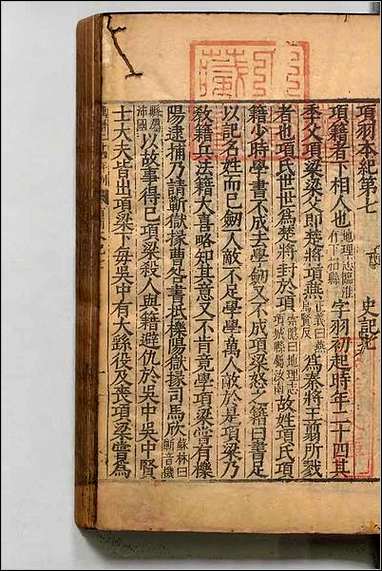 項羽本紀第七　史記七
項籍者下相人也地理志臨淮有下相縣字羽初起時年二十四其
季父項梁梁父即楚將項燕爲秦將王翦所戮
者也項氏世世爲楚將封於項故姓項氏項
籍少時學書不成去學劒又不成項梁怒之籍曰書足
以記名姓而已劒一人敵不足學學萬人敵於是項梁乃
敎籍兵法籍大喜略知其意又不肯竟學項梁嘗有櫟
陽逮捕乃請蘄獄掾曹咎書抵櫟陽獄掾司馬欣蘇林曰蘄音機
縣屬沛國以故事得已項梁殺人與籍避仇於吳中吳中賢
士大夫皆出項梁下每吳中有大繇役及喪項梁嘗爲